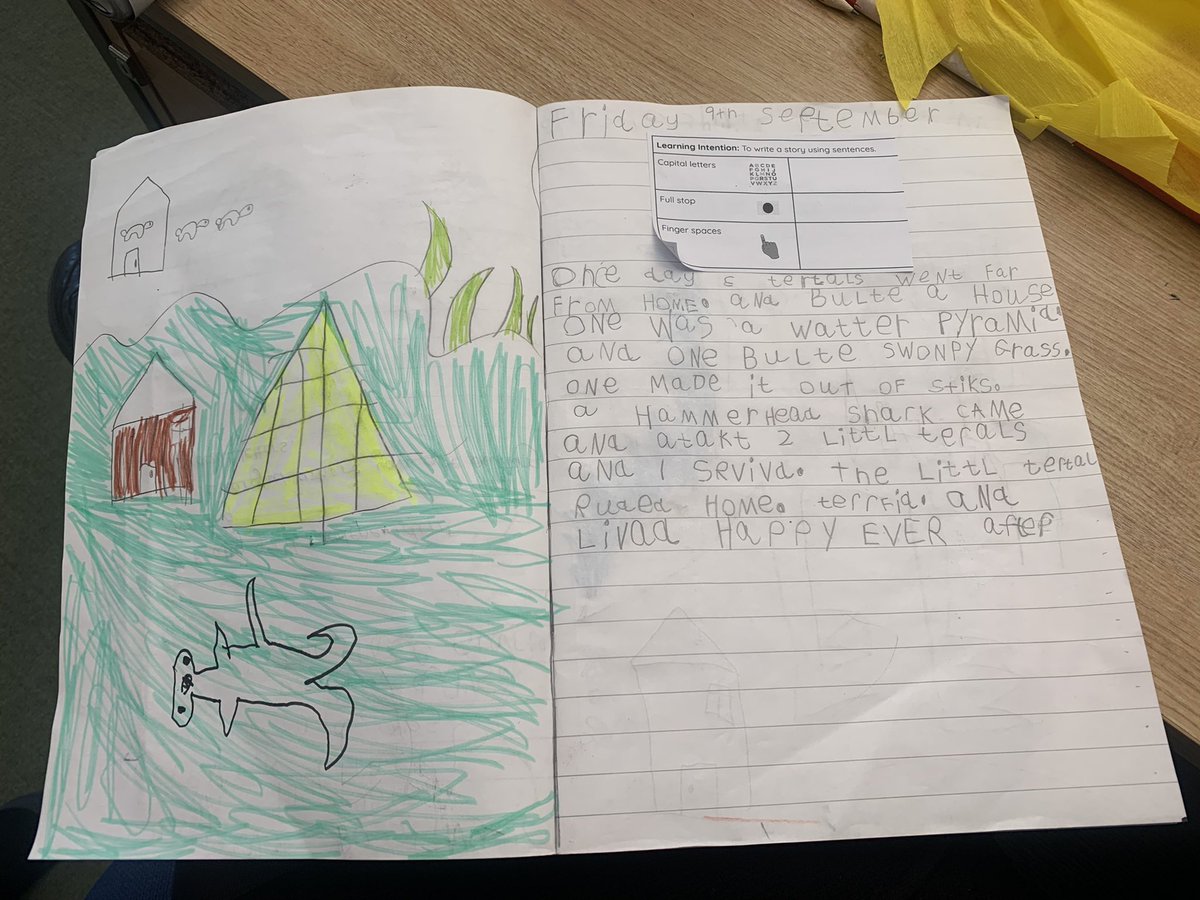 Friday 9th September
Learning Intention: To write a story using sentences.
Capital letters
ABCDE
FGHIJ
KLMNO
PQRSTU
VWXYZ
Full stop
Finger spaces
One day tertals went far
From HOME. and Bulte a House
ONE was a watter Pyramid.
and one Bulte swonpy Grass.
one made it out of stiks.
a Hammerhead shark came
and atakt 2 Littl terals
and 1 srvivd. the Littl tertal
Home. terrfid. and
Livad Happy EVER after